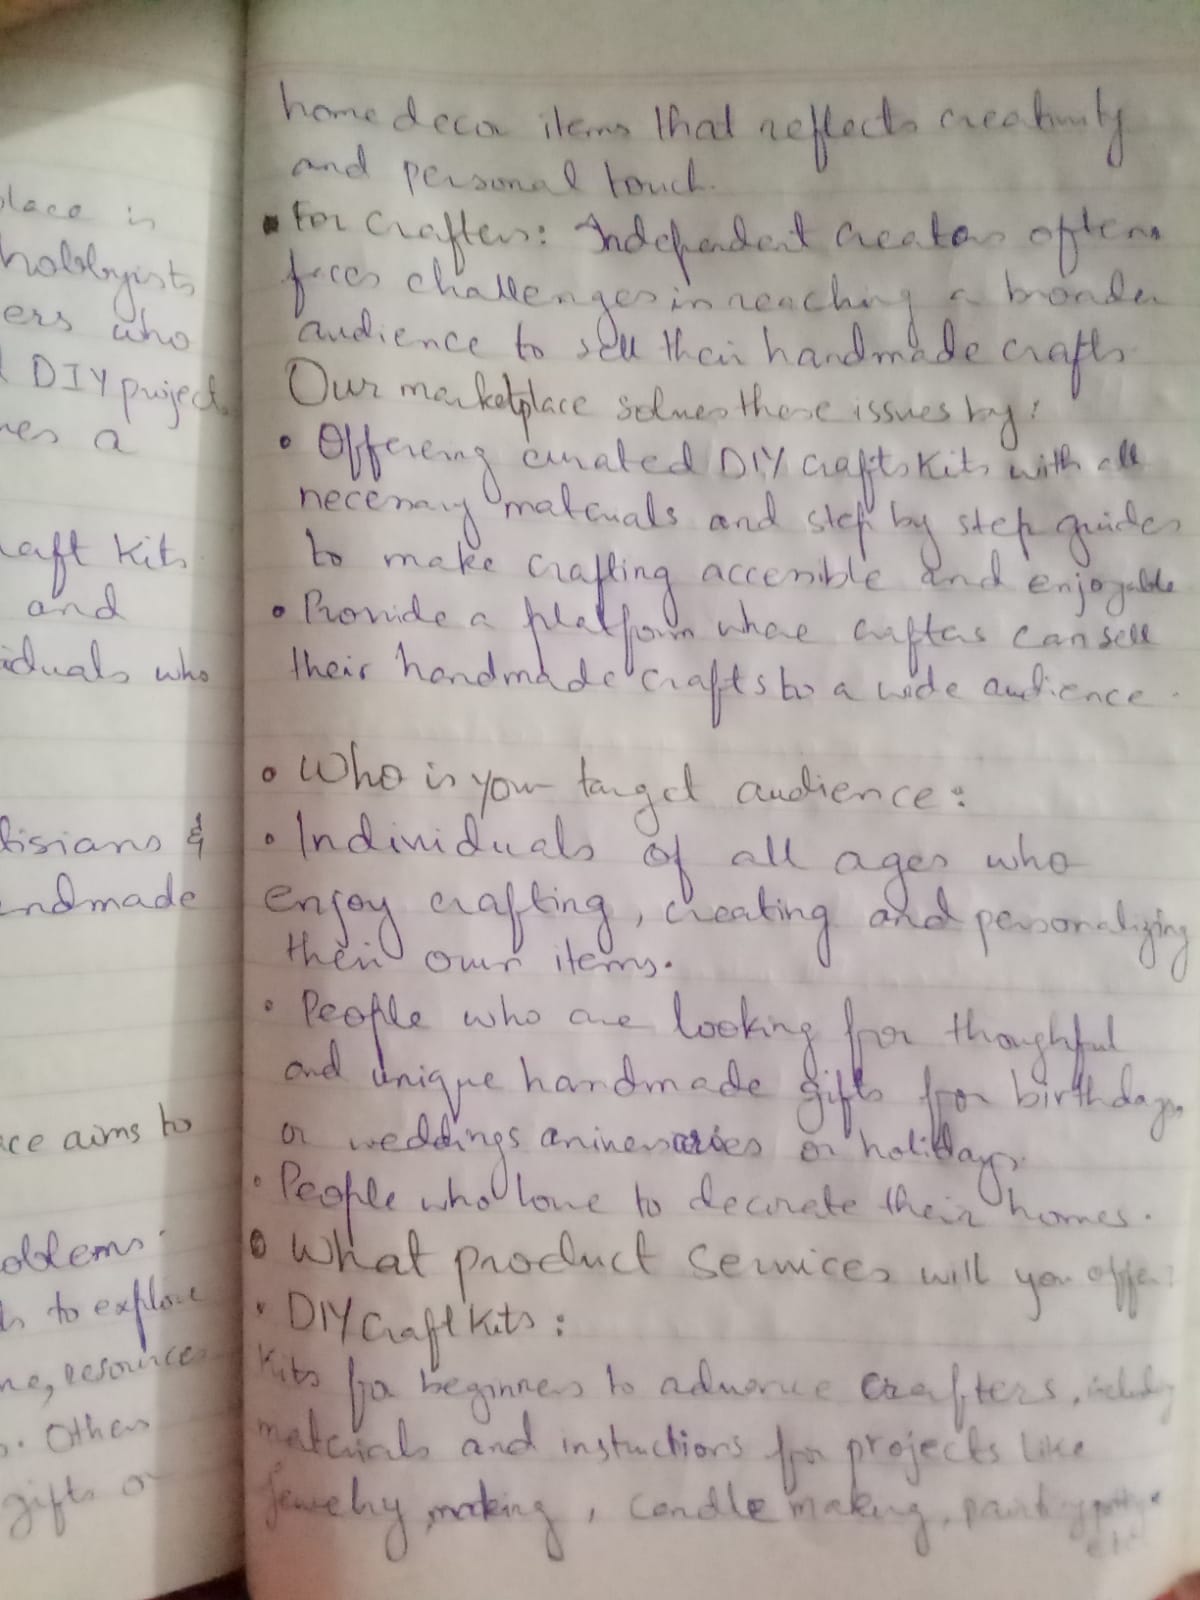 lace is
hobbyists
ers who
DIY project
res a
raft kits
and
iduals who
tisians &
ndmade
ce aims to
oblems.
to explore
resources
Others
gifts or
home decor items that reflects creativity
and personal touch.
For Crafters: Independent creators oftens
faces challenges in reaching a broader
audience to sell their handmade crafts
Our marketplace solves these issues by:
• Offering curated DIY crafts kits with all
necessary materials and step by step guides
to make crafting accessible and enjoyable
• Provide a platform where crafters can sell
their handmade crafts to a wide audience.
• Who is your target audience:
• Individuals of all ages who
enjoy crafting, creating and personalizing
their own items.
• People who are looking for thoughtful
and unique handmade gifts for birthdays
or weddings aniversaries or holidays.
• People who love to decorate their homes.
• What product services will you offer?
• DIY Craft Kits:
Kits for beginners to advance crafters, including
materials and instructions for projects like
Jewelry making, candle making, paint pottery
etc